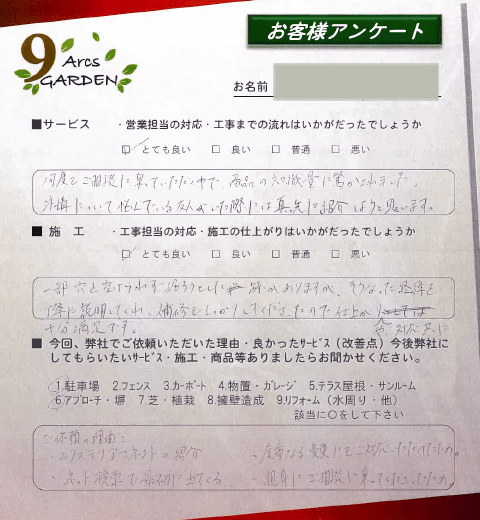 9 Arcs GARDEN
お客様アンケート
お名前
■サービス ・営業担当の対応・工事までの流れはいかがだったでしょうか
☑ とても良い □ 良い □ 普通 □ 悪い
何度もご相談に乗っていただいた中で、商品の知識量に驚かされました。
外構について悩んでいる友人がいた際には真先に紹介しようと思います。
■施 工 ・工事担当の対応・施工の仕上がりはいかがだったでしょうか
☑ とても良い □ 良い □ 普通 □ 悪い
一部 がありますが、そうなった経緯を
丁寧に説明してくれ、補修もしっかりしてくださったので仕上がり
十分満足です。 対応共に
■ 今回、弊社でご依頼いただいた理由・良かったサービス（改善点）今後弊社に
してもらいたいサービス・施工・商品等ありましたらお聞かせください。
1.駐車場 2.フェンス 3.カーポート 4.物置・ガレージ 5.テラス屋根・サンルーム
6.アプローチ・塀 7.芝・植栽 8.擁壁造成 9.リフォーム（水周り・他）
該当に○をして下さい
ご依頼の理由：
・エクステリアコネクトの紹介 ・度重なる変更にもご対応いただけたため。
・ネット検索で最初に出てくる ・親身にご相談に乗ってくださったため。